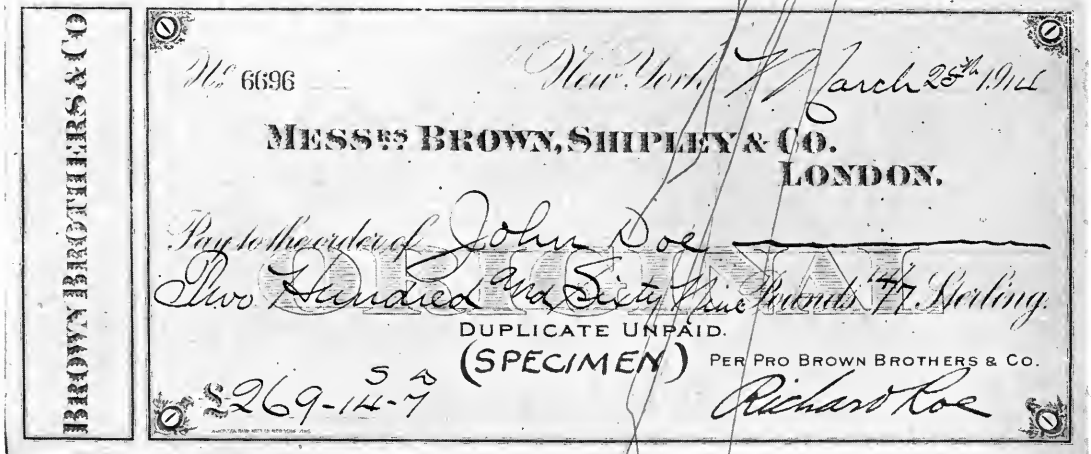 BROWN BROTHERS & CO
No 6696
New York, March 25th 1914
MESSRS BROWN, SHIPLEY & CO.
LONDON.
Pay to the order of John Doe
ORIGINAL
Two Hundred and Sixty Nine Pounds 14/7 Sterling.
DUPLICATE UNPAID.
(SPECIMEN)
PER PRO BROWN BROTHERS & CO.
S D
£269-14-7
Richard Roe